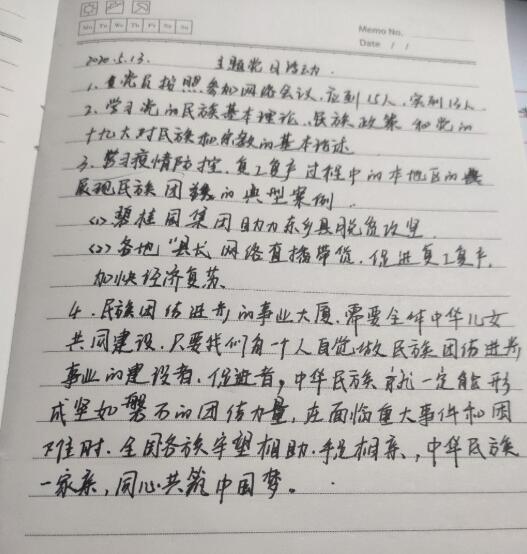 Mo Tu We Th Fr Sa Su
Memo No.
Date / /
2020.5.13. 主题党日活动.
1. 全党员按照参加网络会议,应到15人,实到13人.
2、学习党的民族基本理论、民族政策和党的
十九大对民族和宗教的基本论述.
3、学习疫情防控,复工复产过程中的本地区的
展现民族团结的典型案例.
(1) 碧桂园集团助力东乡县脱贫攻坚
(2) 各地"县长网络直播带货,促进复工复产,
加快经济复苏、
4、民族团结进步的事业大厦,需要全体中华儿女
共同建设,只要我们每一个人自觉做民族团结进步
事业的建设者、促进者,中华民族就一定能形
成坚如磐石的团结力量,在面临重大事件和困
难时,全国各族守望相助、手足相亲,中华民族
一家亲,同心共筑中国梦。